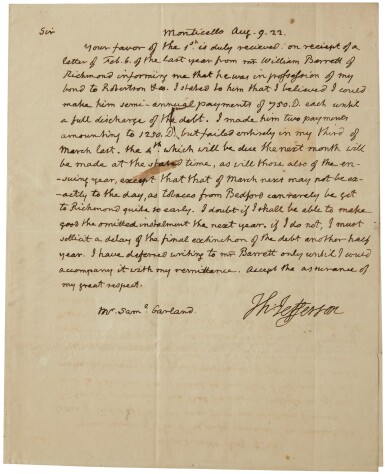 Sir Monticello Aug. 9. 22.
Your favor of the 1st is duly recieved. on reciept of a
letter of Feb. 6. of the last year from mr William Barrett of
Richmond informing me that he was in possession of my
bond to Robertson & co. I stated to him that I believed I could
make him semi-annual payments of 750. D. each until
a full discharge of the debt. I made him two payments
amounting to 1250. D. but failed entirely in my third of
March last. the 4th which will be due the next month will
be made at the stated time, as will those also of the en-
-suing year, except that that of March next may not be ex-
-actly to the day, as tobaccos from Bedford can rarely be got
to Richmond quite so early. I doubt if I shall be able to make
good the omitted instalment the next year. if I do not, I must
sollicit a delay of the final extinction of the debt another half
year. I have deferred writing to mr Barrett only until I could
accompany it with my remittance. Accept the assurance of
my great respect.
Th: Jefferson
Mr. Saml. Garland